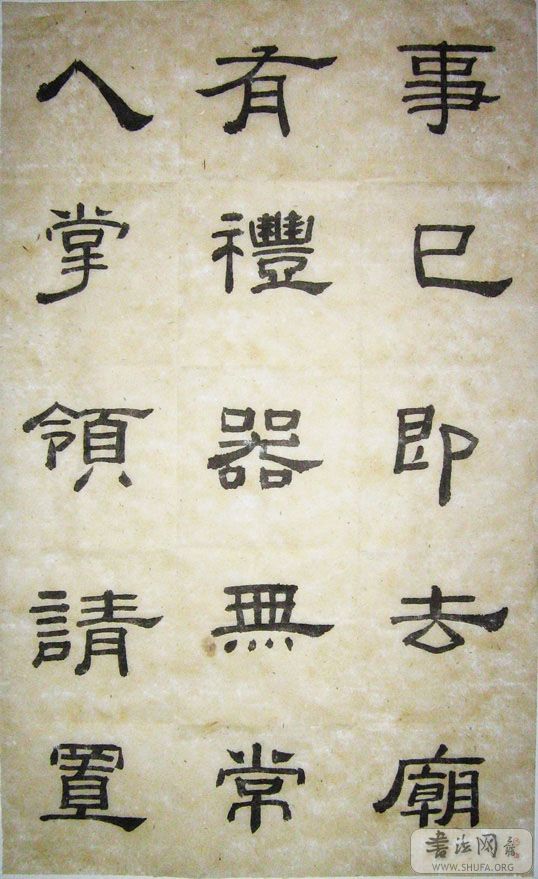 事已即去廟
有禮器無常
人掌領請置
书法网
WWW.SHUFA.ORG